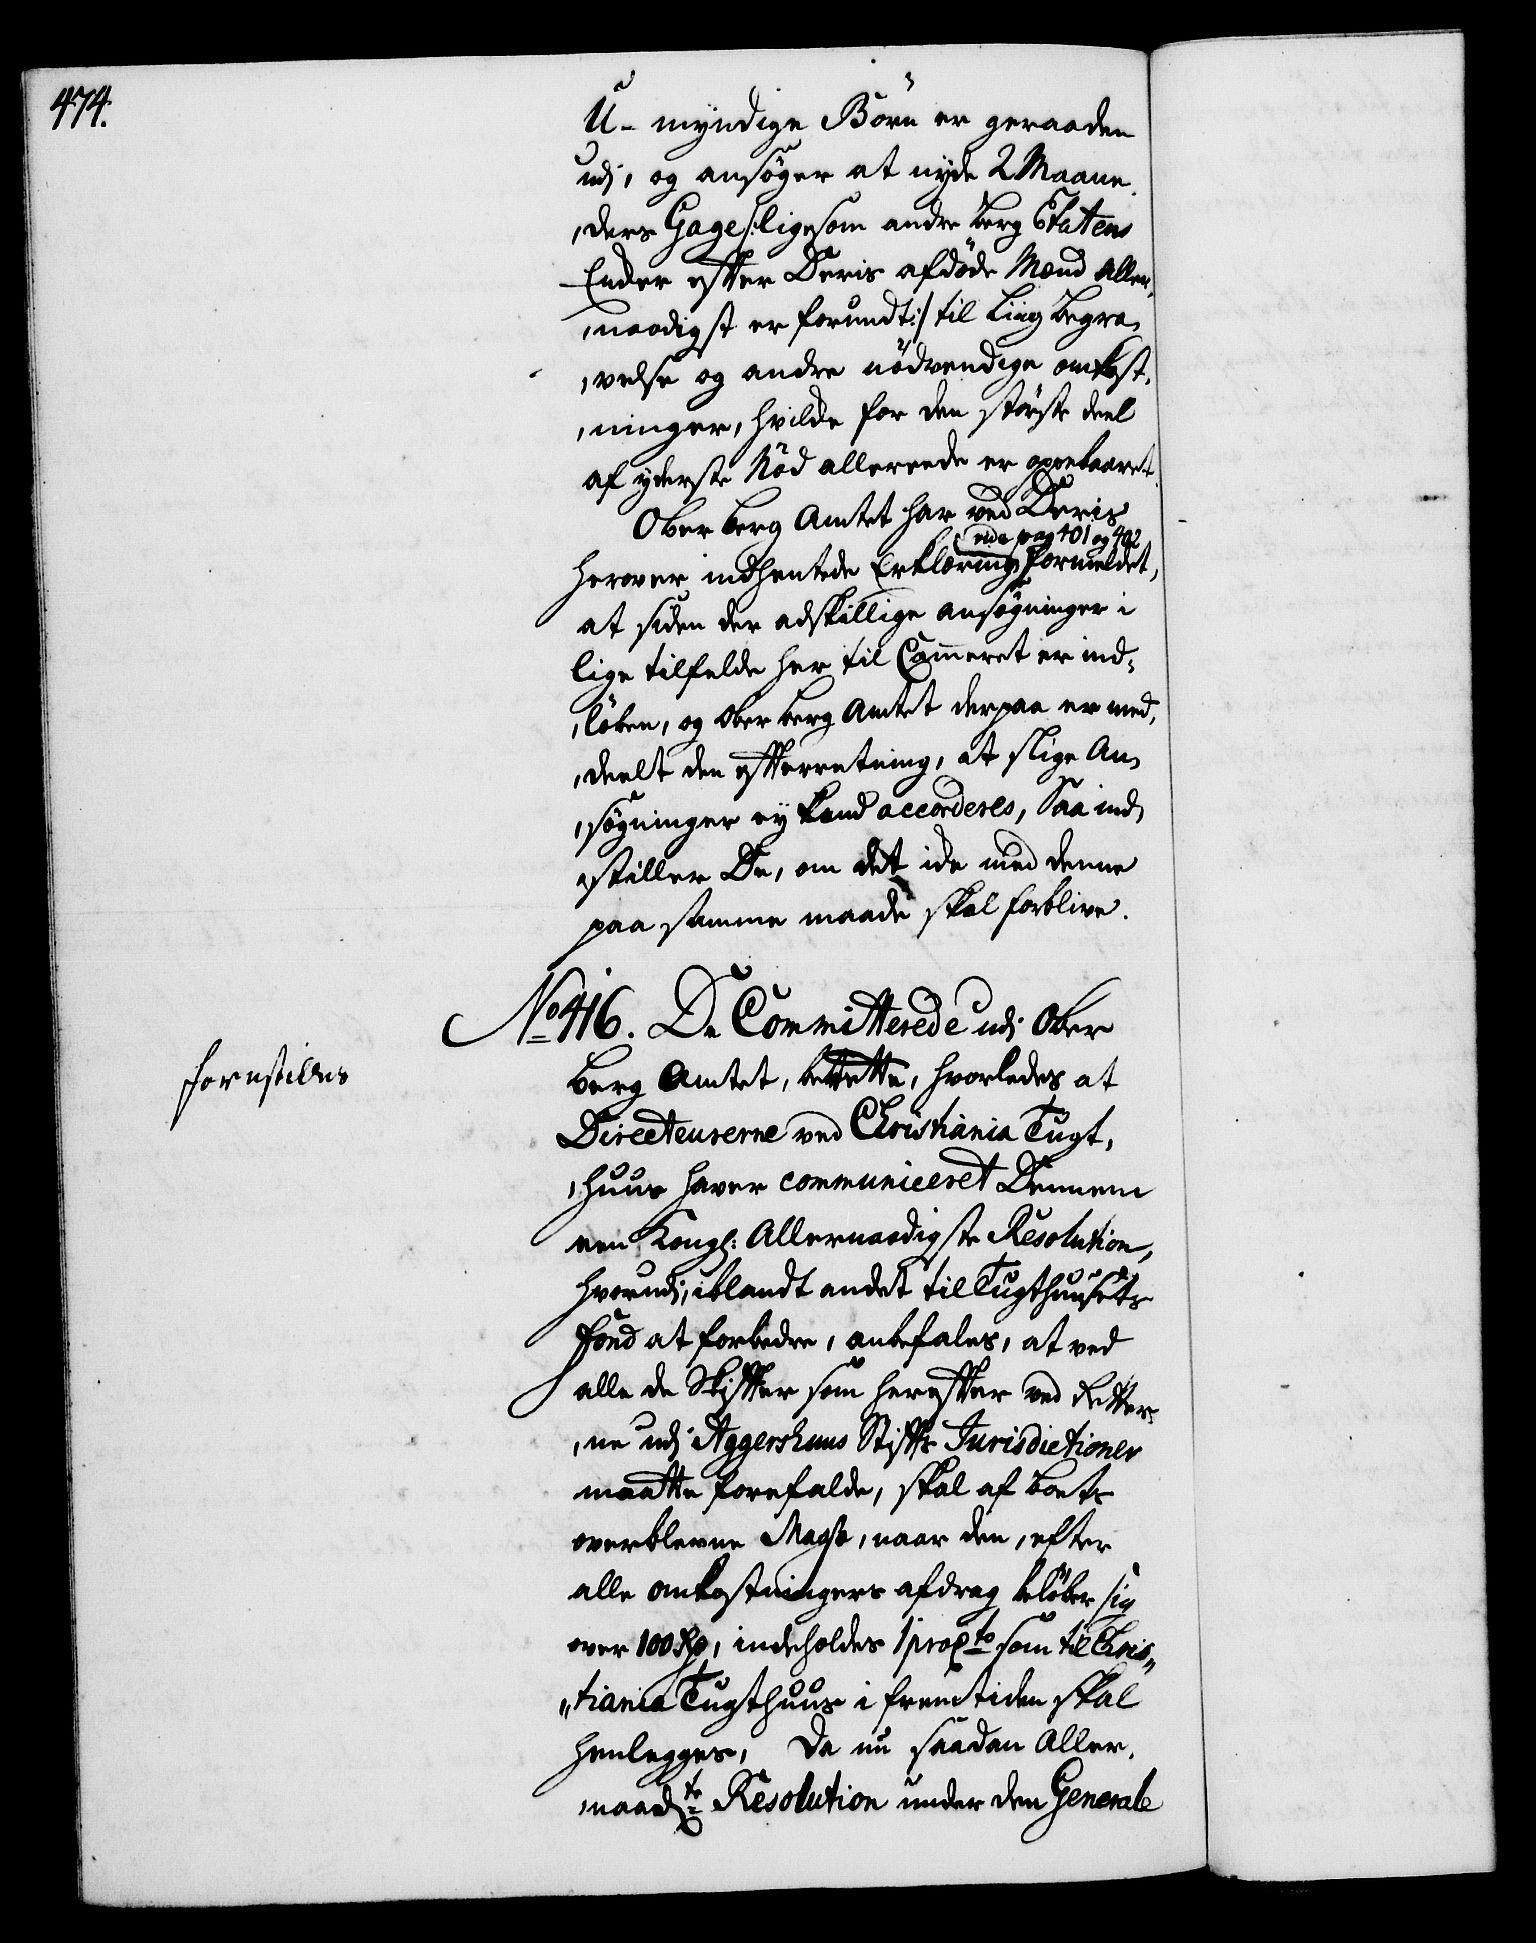 474.
U- myndige Börn er geraaden
udj, og ansöger at nyde 2 Maane
,ders Gage /: ligesom andre Berg Etatens
Enker efter Deris afdöde Mænd Aller,
,naadigst er forundt :/ til Liig Begra,
,velse og andre nödvendige omkost,
,ninger, hvilcke for den störste deel
af yderste Nöd allereede er oppebaaret.
Ober Berg Amtet har ved Deris
vide pag 401 og 402
herover indhentede Erklæring formeldet,
at siden der adskillige ansögninger i
lige tilfelde her til Cammeret er ind,
,löben, og Ober Berg Amtet derpaa er med,
,deelt den efterretning, at slige An,
,sögninger ey kand accorderes, Saa ind,
,stiller De, om det icke med denne
paa samme maade skal forblive.
No 416. De Committerede udj Ober
forestilles
Berg Amtet, berette, hvorledes at
Directeurerne ved Christiania Tugt,
,huus haver communiceret Dennem
een Kongl: Allernaadigste Resolution,
hvorudj, iblandt andet til Tugthuusets
Fond at forbedre, anbefales, at ved
alle de Skifter som herefter ved Retter,
,ne udj Aggershuus Stifts Jurisdictioner
maatte forefalde, skal af Boets
overblevne Massa, naar den, efter
alle omkostningers afdrag belöber sig
over 100 Rd, indeholdes 1 pro Cto som til Chris„
„tiania Tugthuus i fremtiden skal
henlegges, Da nu saadan Aller,
,naadigste Resolution under den Generale